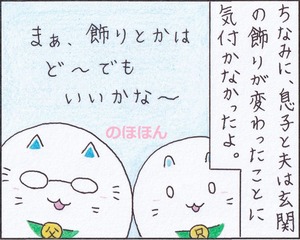 ちなみに、息子と夫は玄関
の飾りが変わったことに
気付かなかったよ。
まぁ、飾りとかは
ど～でも
いいかな～
のほほん
父
兄